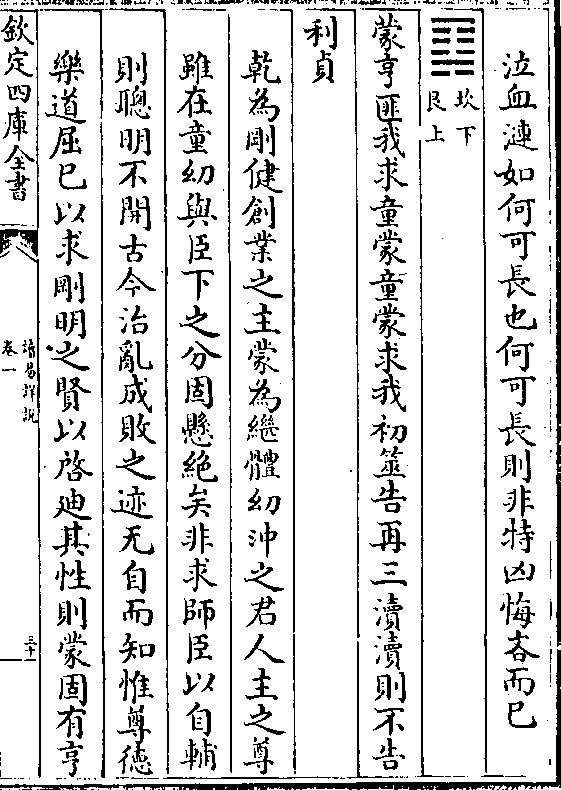 泣血漣如何可長也何可長則非特凶悔吝而已
坎下
艮上
蒙亨匪我求童蒙童蒙求我初筮告再三瀆瀆則不告
利貞
乾為剛健創業之主蒙為繼體幼沖之君人主之尊
雖在童幼與臣下之分固懸絶矣非求師臣以自輔
則聰明不開古今治亂成敗之迹无自而知惟尊徳
樂道屈已以求剛明之賢以啓廸其性則蒙固有亨
欽定四庫全書
讀易詳說
卷一
三十